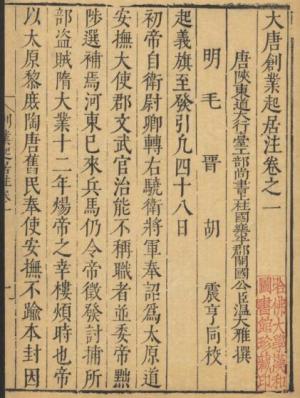 大唐創業起居注卷之一
唐陝東道大行臺工部尚書上柱國樂平郡開國公臣溫大雅撰
明毛晉胡震亨同校
起義旗至發引凡四十八日
初帝自衛尉卿轉右驍衛將軍奉詔為太原道
安撫大使郡文武官治能不稱職者並委帝黜
陟選補焉河東已來兵馬仍令帝徵發討捕所
部盜賊隋大業十二年煬帝之幸樓煩時也帝
以太原黎庶陶唐舊民奉使安撫不踰本封因
哈佛大學漢和圖書館珍藏印